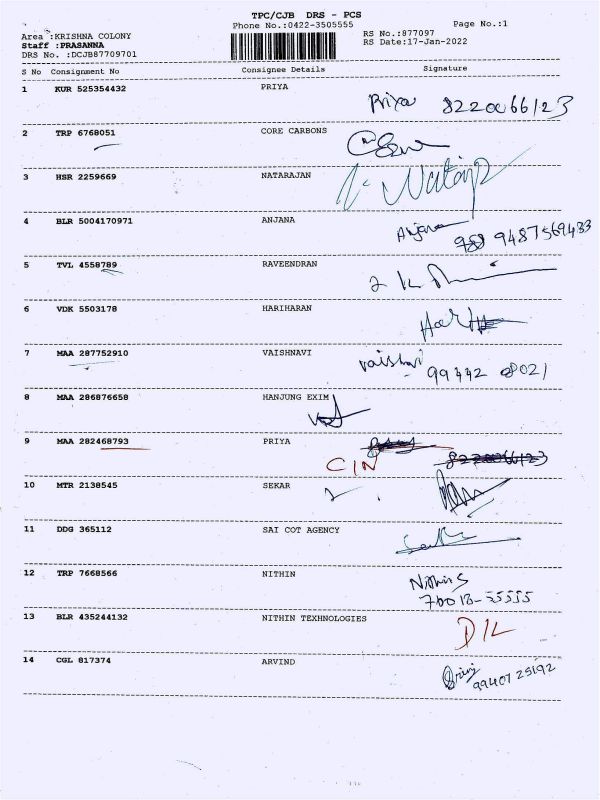 TPC/CJB DRS - PCS
Phone No.:0422-3505555 Page No.:1
Area :KRISHNA COLONY RS No.:877097
Staff :PRASANNA RS Date:17-Jan-2022
DRS No. :DCJB87709701
S No Consignment No Consignee Details Signature
1 KUR 525354432 PRIYA
Priya 8220066123
2 TRP 6768051 CORE CARBONS
3 HSR 2259669 NATARAJAN
4 BLR 5004170971 ANJANA
Anjana 9487569433
5 TVL 4558789 RAVEENDRAN
6 VDK 5503178 HARIHARAN
7 MAA 287752910 VAISHNAVI
99442 08021
8 MAA 286876658 HANJUNG EXIM
9 MAA 282468793 PRIYA
CIN 8220066123
10 MTR 2138545 SEKAR
11 DDG 365112 SAI COT AGENCY
12 TRP 7668566 NITHIN
Nithin S
70013-55555
13 BLR 435244132 NITHIN TEXHNOLOGIES
DIL
14 CGL 817374 ARVIND
99407 25192